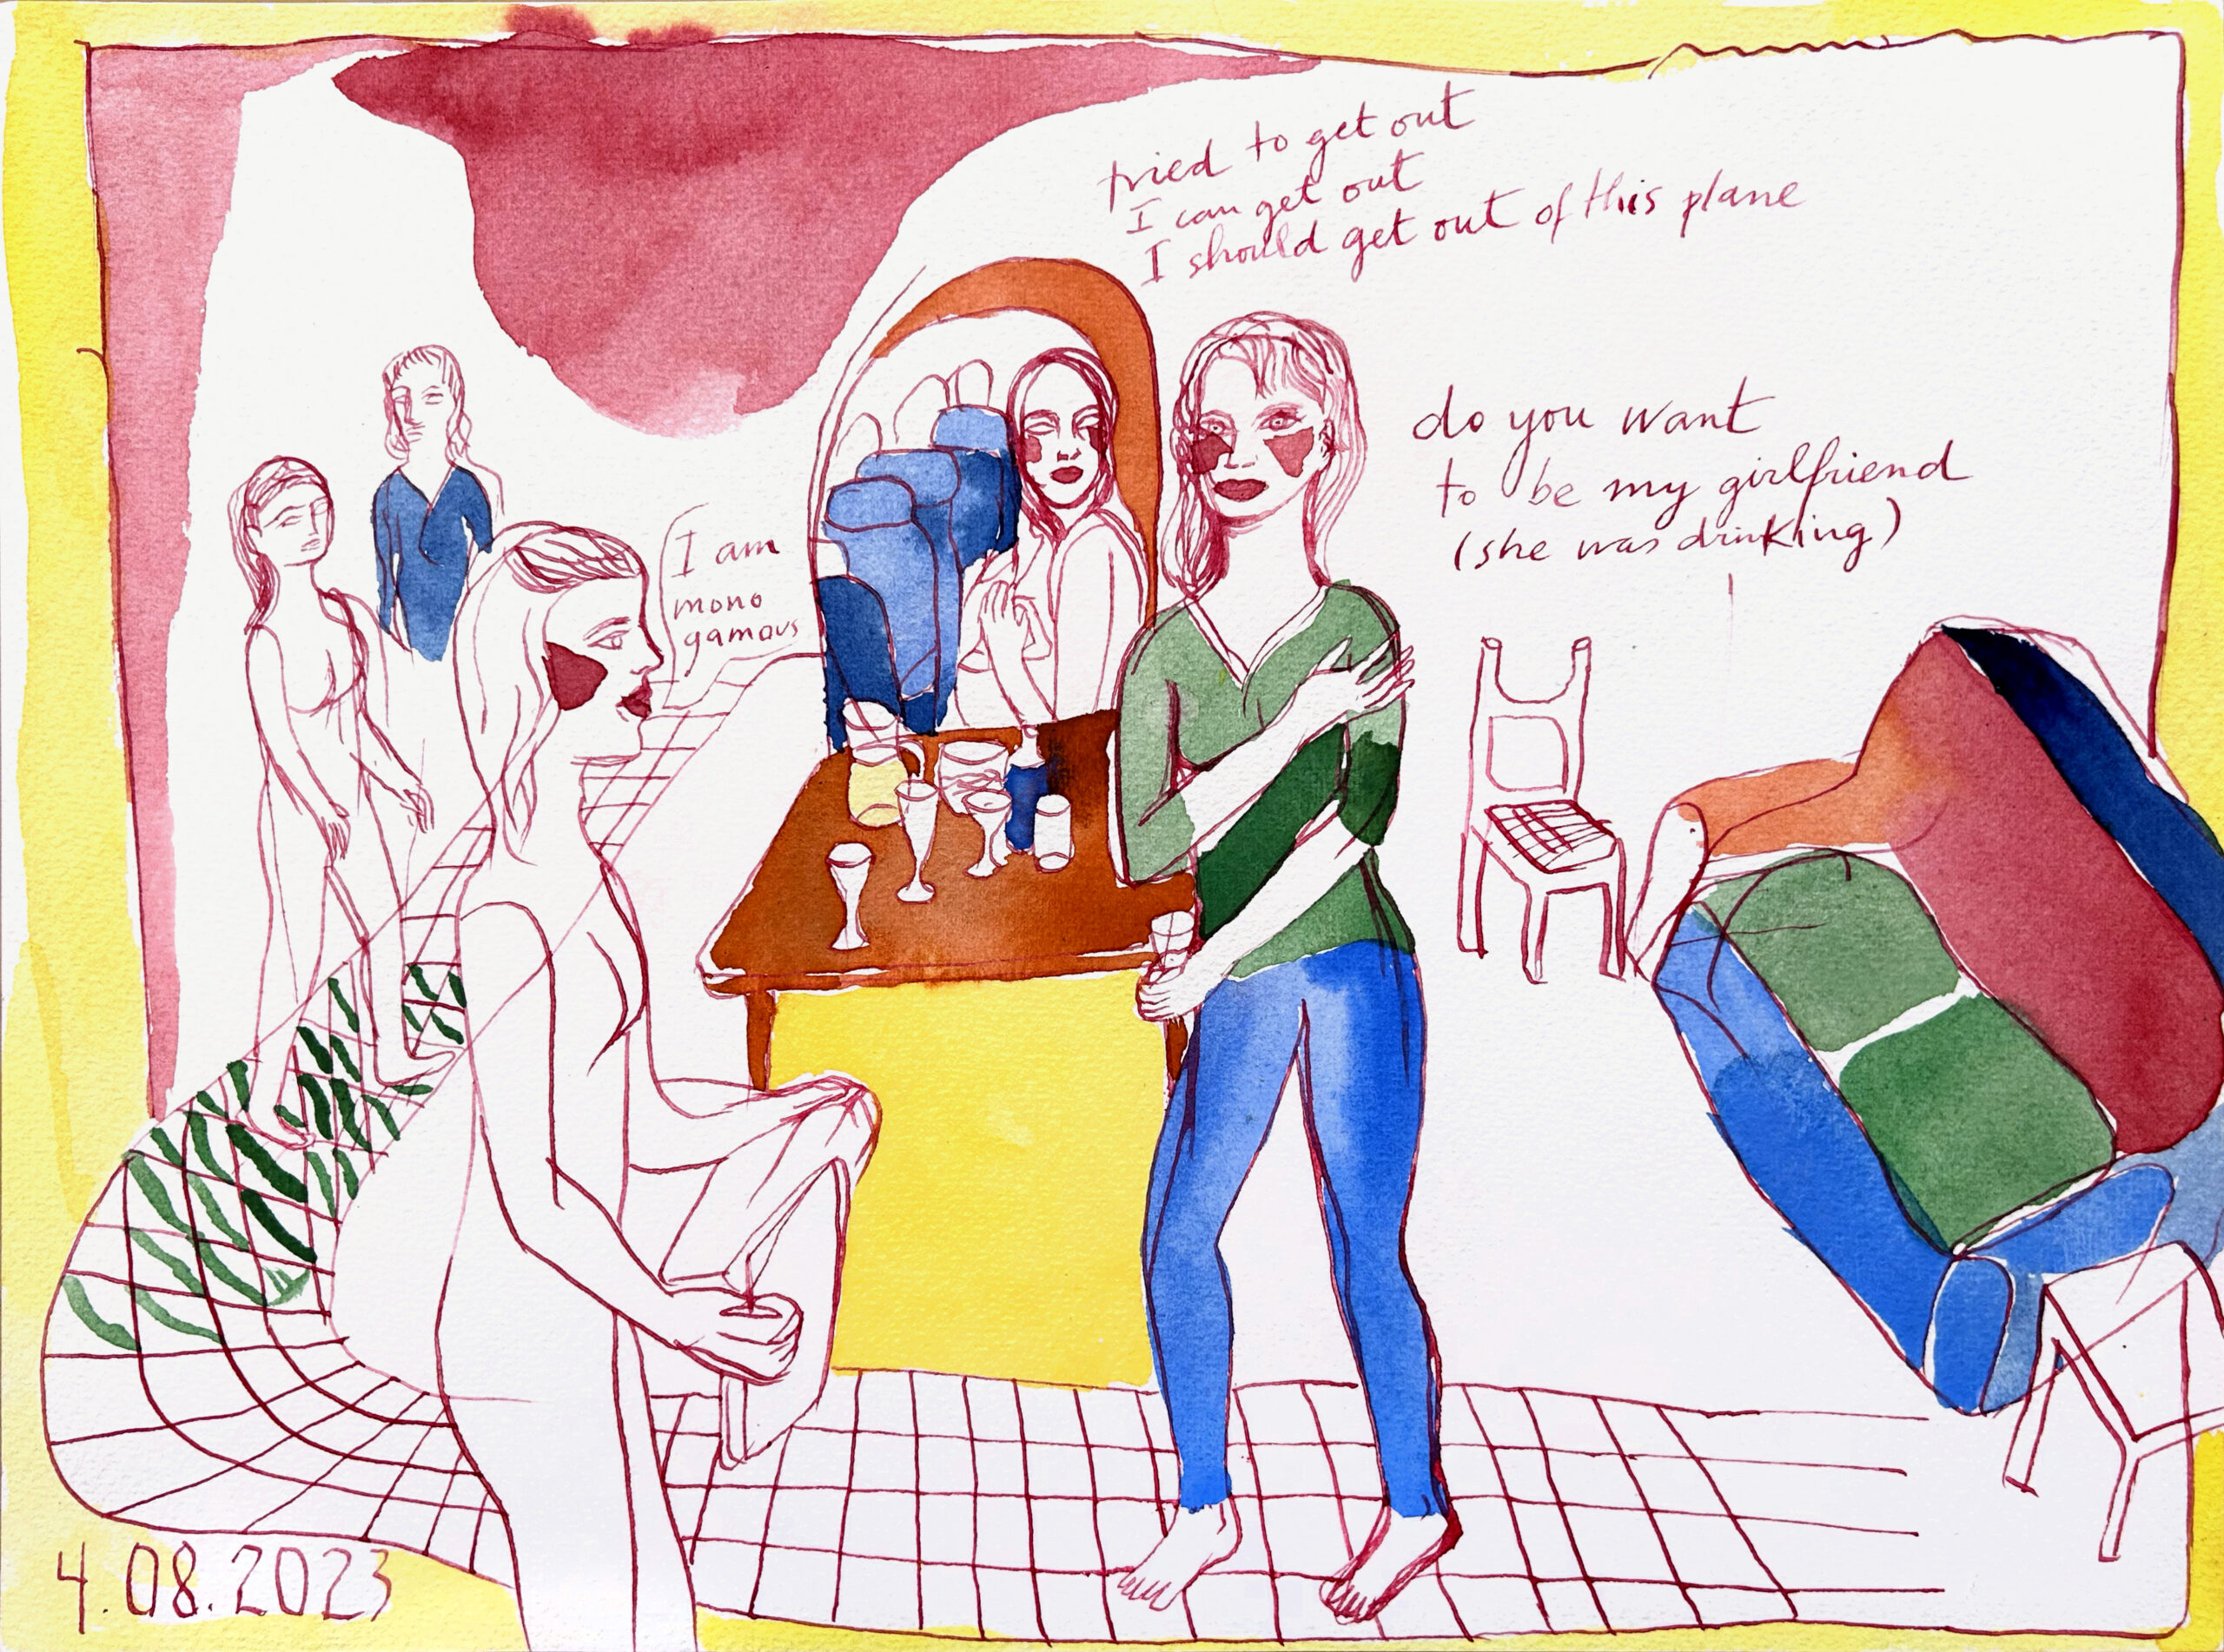 tried to get out
I can get out
I should get out of this plane
do you want
to be my girlfriend
(she was drinking)
I am
mono
gamous
4.08.2023